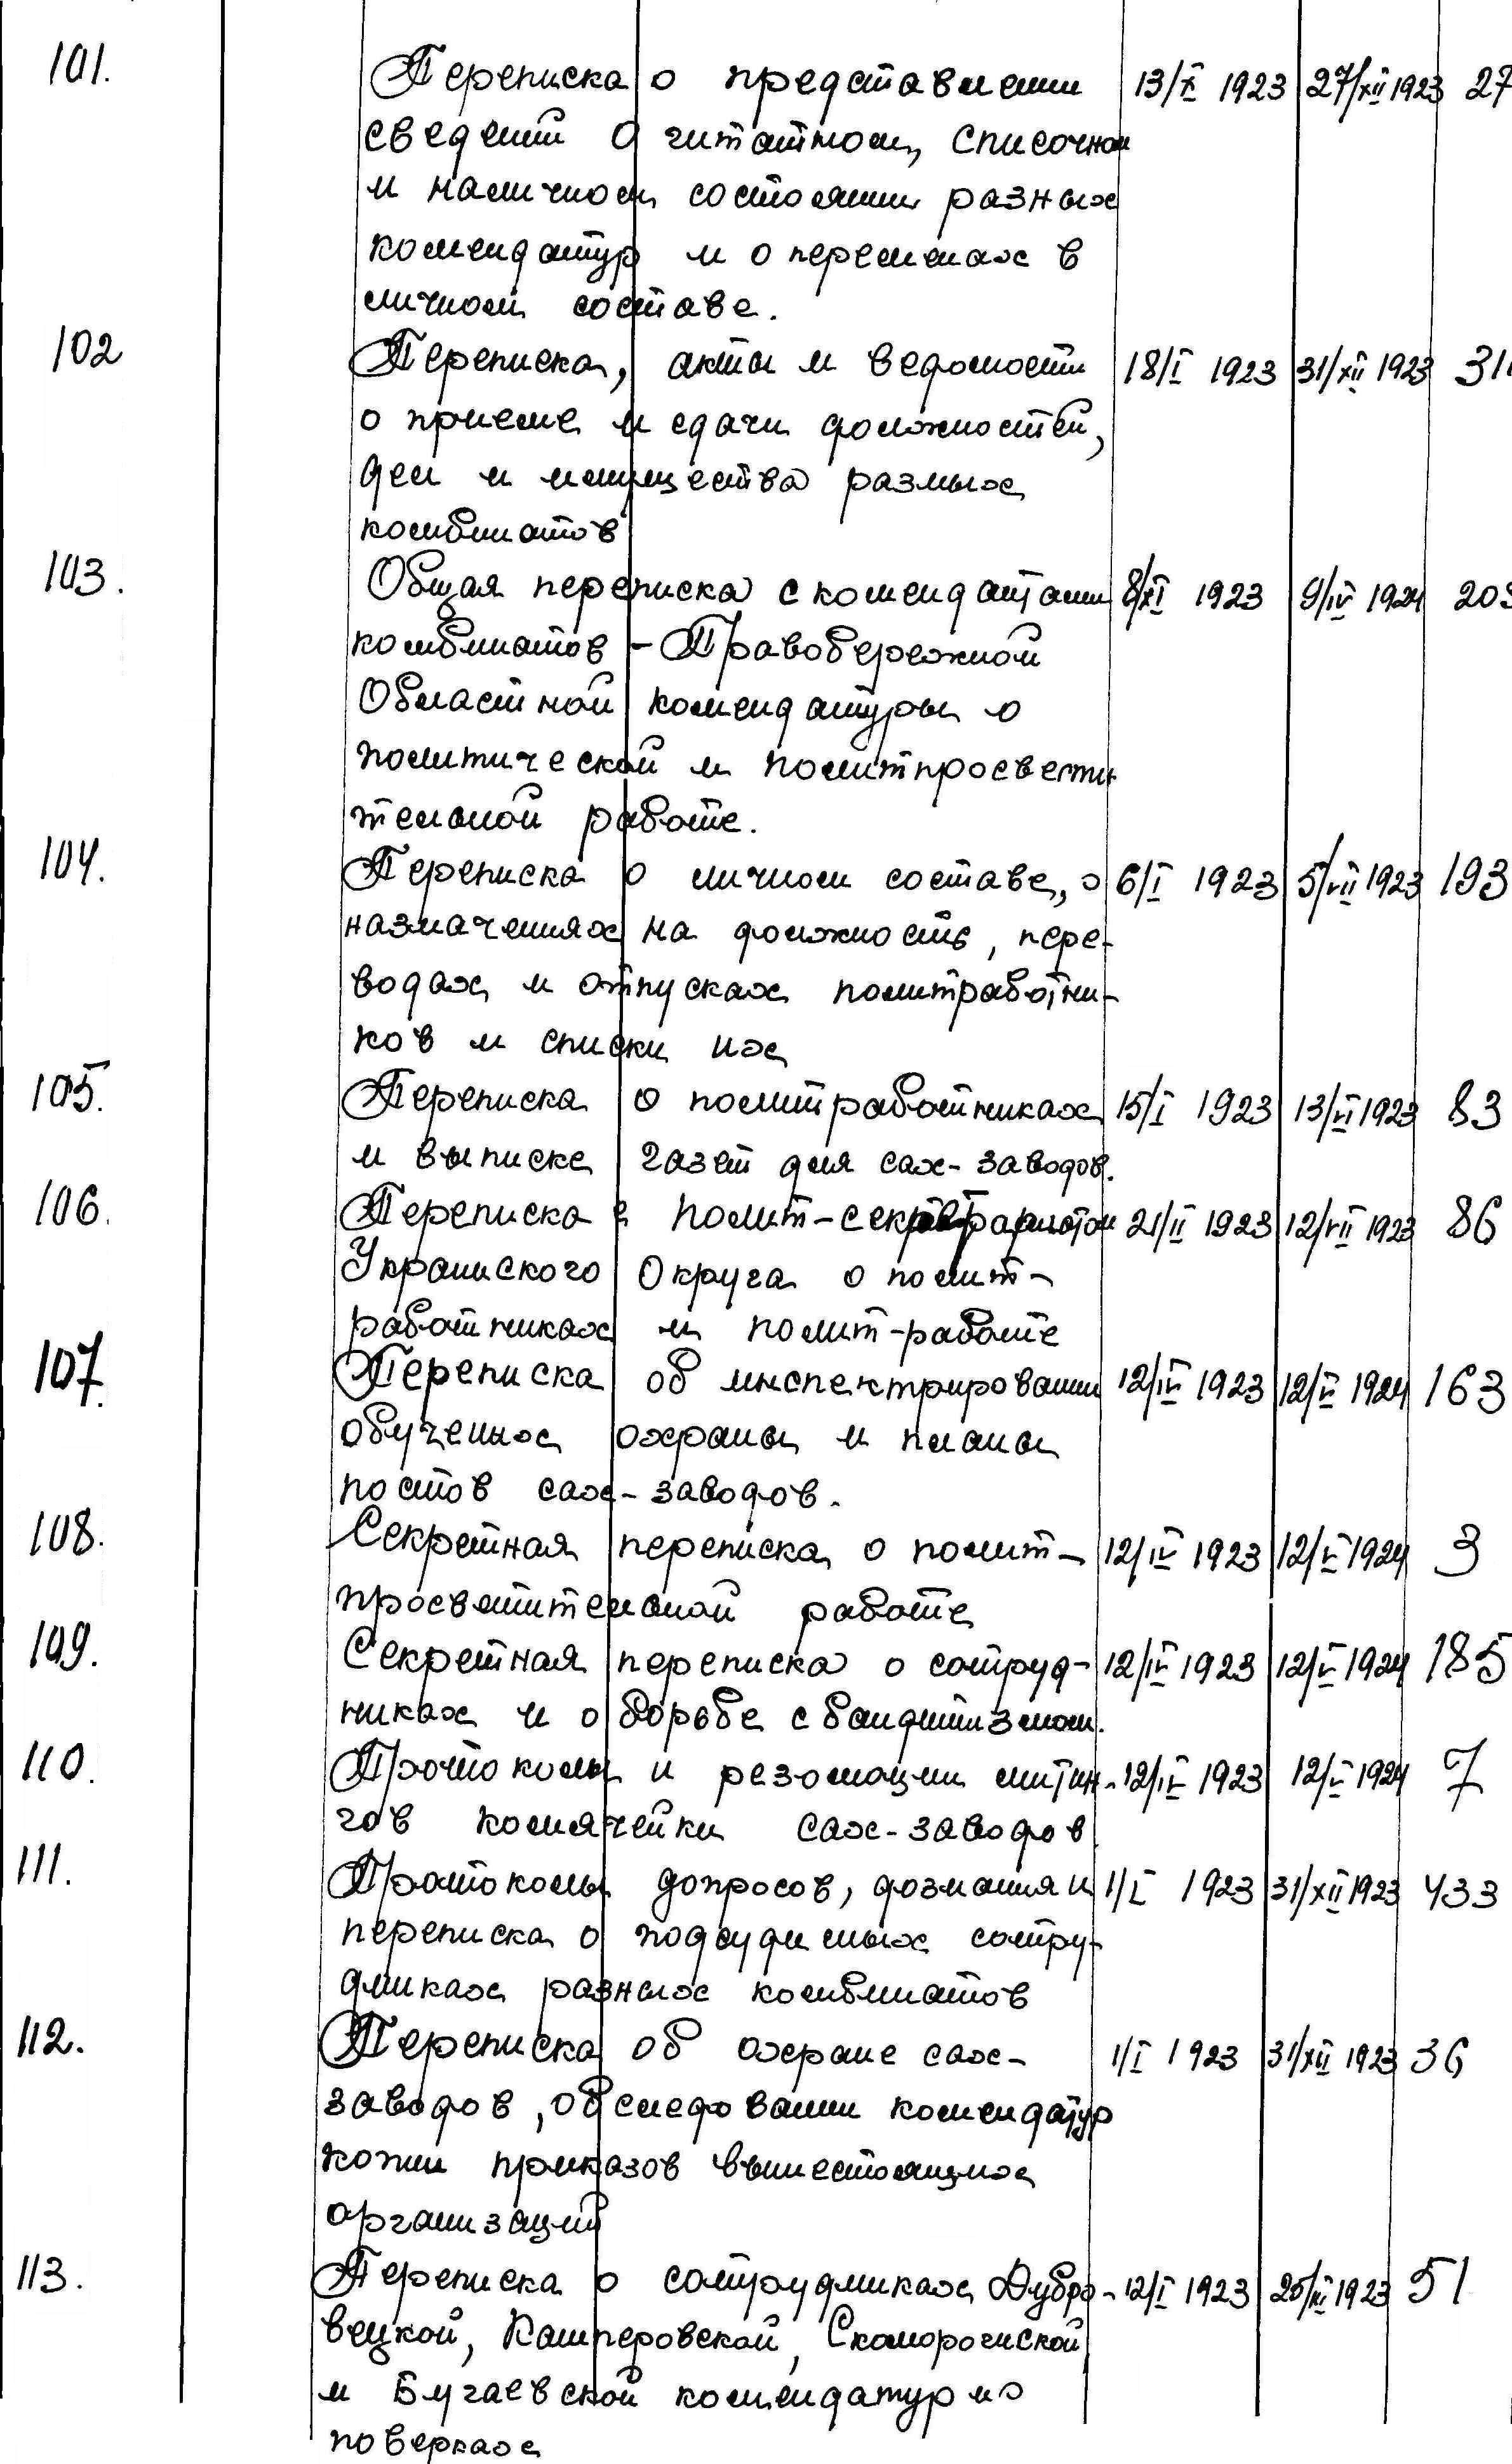 101. Переписка о представлении 13/X 1923 27/XII 1923 27
сведений о читатном, списочном
и наличном состоянии разных
комендатур и о переменах в
личном составе.
102 Переписка, акты и ведомости 18/I 1923 31/XII 1923 311
о приеме и сдачи должностей,
дел и имущества разных
комбинатов
103. Общая переписка с комендантами 8/XI 1923 9/IV 1924 203
комбинатов - Правобережной
Областной комендатуры о
политической и политпросвети
тельной работе.
104. Переписка о личном составе, о 6/I 1923 5/VII 1923 193
назначениях на должность, пере-
водах и отпусках политработни-
ков и списки их
105. Переписка о политработниках 15/I 1923 13/VI 1923 83
и выписке газет для сах-заводов.
106. Переписка с полит-секретариатом 21/II 1923 12/VII 1923 86
Украинского Округа о полит-
работниках и полит-работе
107. Переписка об инспектировании 12/IV 1923 12/V 1924 163
обученных охраны и планы
постов сах-заводов.
108. Секретная переписка о полит- 12/IV 1923 12/V 1924 3
просвитительной работе
109. Секретная переписка о сотруд- 12/IV 1923 12/V 1924 185
никах и о борьбе с бандитизмом.
110. Протоколы и резолюции митин- 12/IV 1923 12/V 1924 7
гов комячейки сах-заводов
111. Протоколы допросов, дознания и 1/I 1923 31/XII 1923 433
переписка о подсудимых сотру-
дниках разных комбинатов
112. Переписка об охране сах- 1/I 1923 31/XII 1923 36
заводов, обследовании комендатур
копии приказов вышестоящих
организаций
113. Переписка о сотрудниках Дубро- 12/I 1923 25/XI 1923 51
вецкой, Кашперовской, Скоморогиской
и Бугаевской комендатур и о
поверках